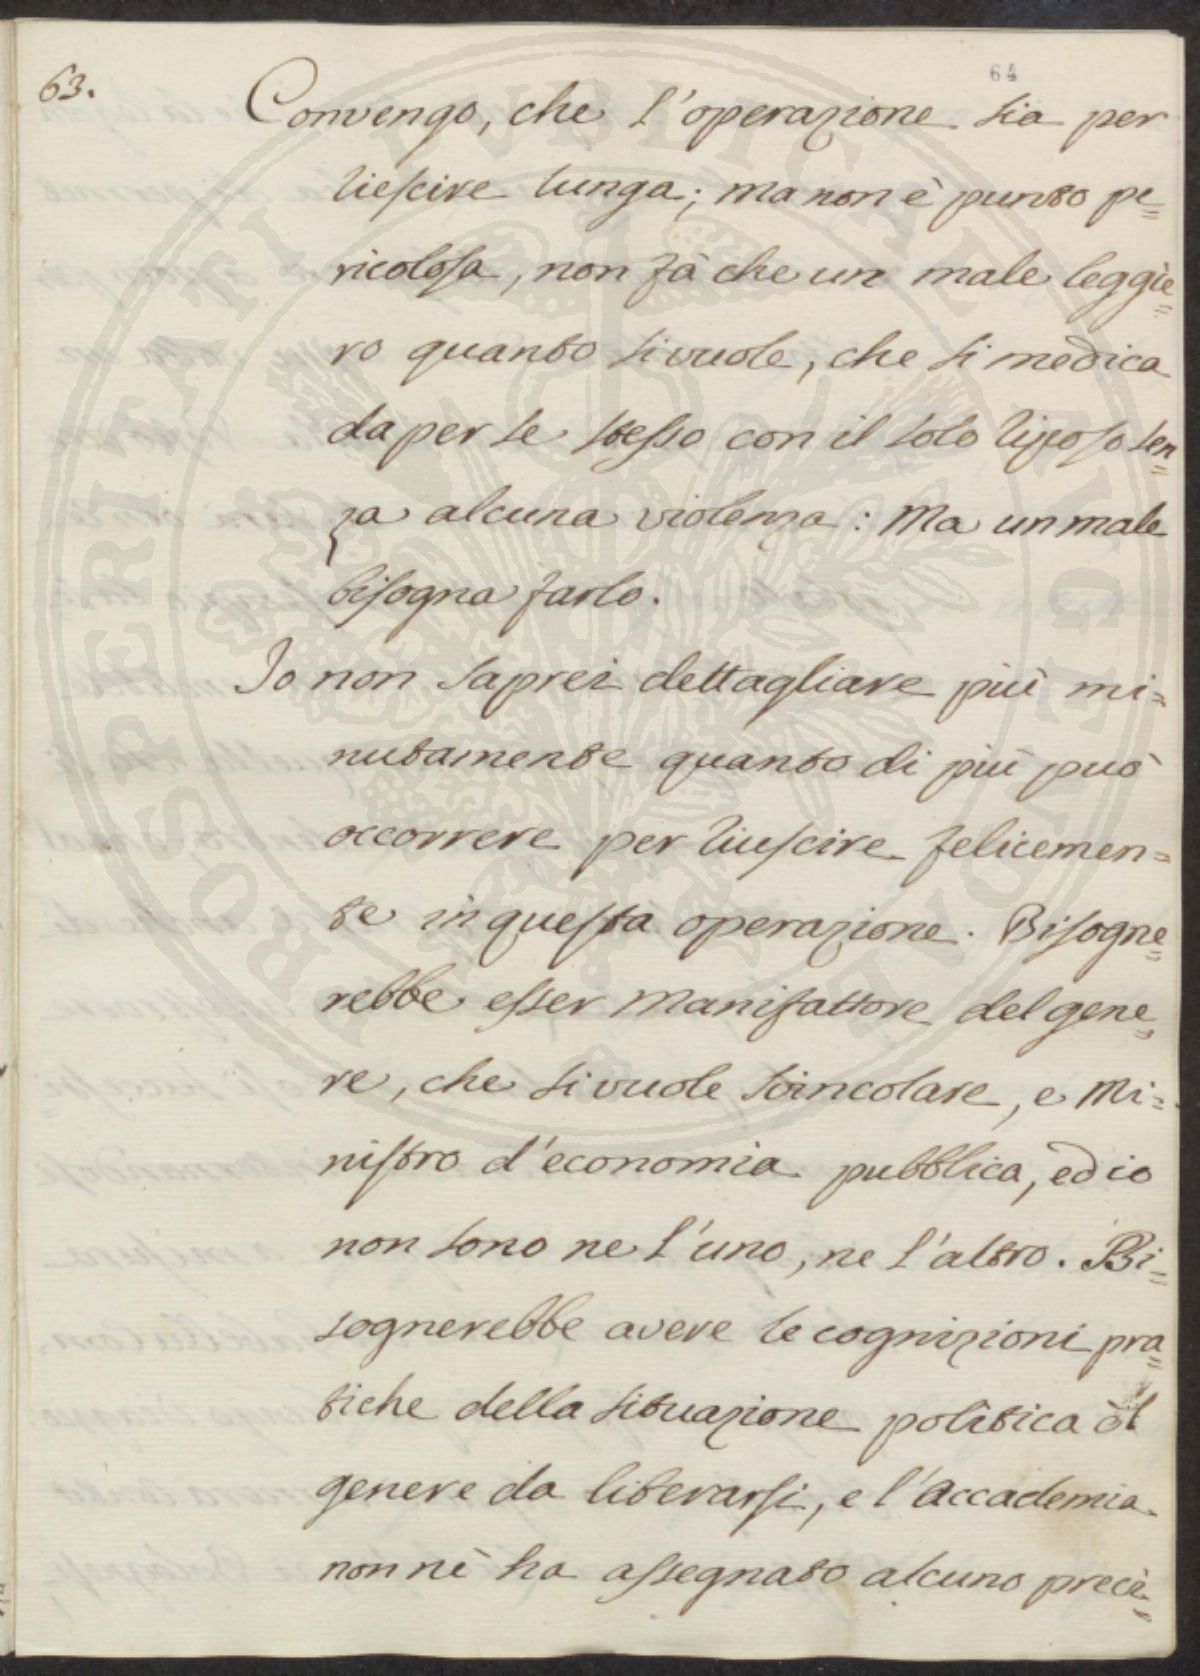 63.
64
Convengo, che l'operazione sia per
riescire lunga; ma non è punto pe=
ricolosa, non fà che un male leggie=
ro quanto si vuole, che si medica
da per se stesso con il solo riposo sen=
za alcuna violenza: Ma un male
bisogna farlo.
Io non saprei dettagliare più mi=
nutamente quanto di più può
occorrere per riuscire felicemen=
te in questa operazione. Bisogne=
rebbe esser Manifattore del gene=
re, che si vuole svincolare, e Mi=
nistro d'economia pubblica, ed io
non sono ne l'uno, ne l'altro. Bi=
sognerebbe avere le cognizioni pra=
tiche della situazione politica del
genere da liberarsi, e l'Accademia
non nè ha assegnato alcuno preci=
PROSPERITATI PVBLICAE AVGENDAE